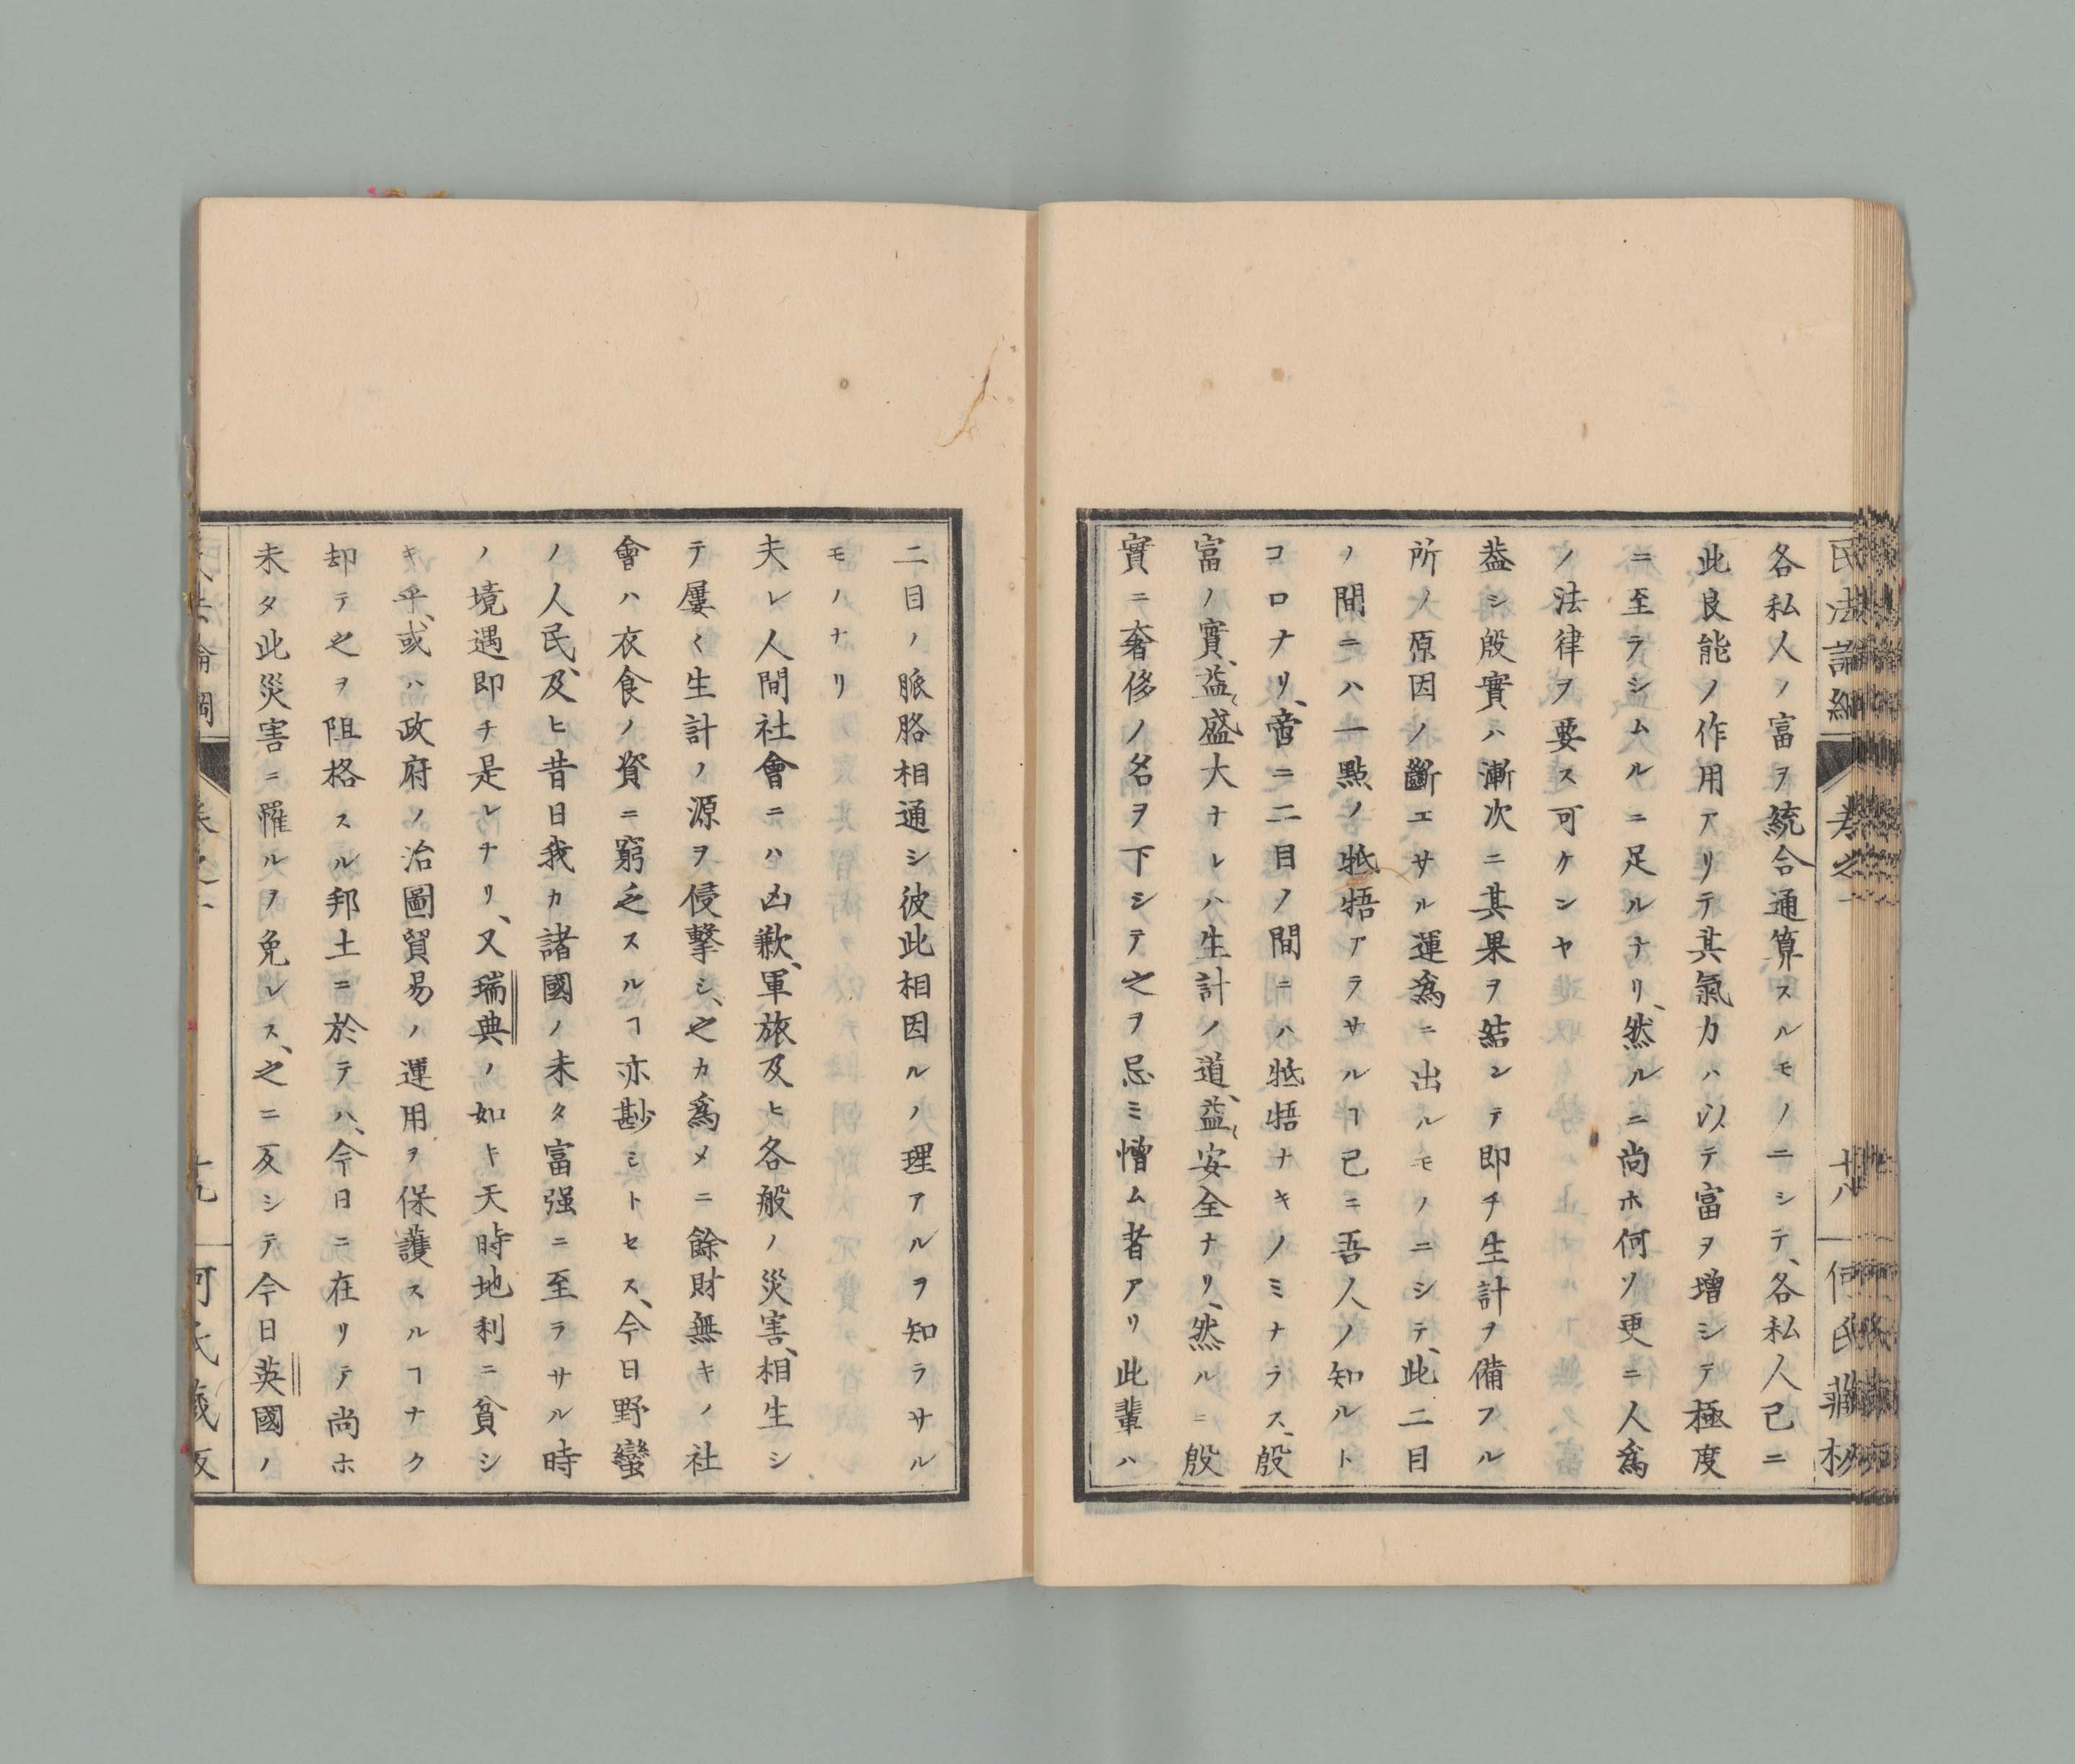 各私人ノ富ヲ統合通算スルモノニシテ、各私人已ニ
此良能ノ作用アリテ其氣力ハ以テ富ヲ增シテ極度
ニ至ラシムルニ足ルナリ、然ルニ尚ホ何ソ更ニ人爲
ノ法律ヲ要ス可ケンヤ
葢シ殷實ハ漸次ニ其果ヲ結ンテ即チ生計ヲ備フル
所ノ原因ノ斷エサル運爲ニ出ルモノニシテ、此二目
ノ間ニハ一點ノ牴牾アラサルヿ已ニ吾人ノ知ルト
コロナリ、啻ニ二目ノ間ニハ牴牾ナキノミナラス、殷
富ノ實、益〻盛大ナレハ生計ノ道、益〻安全ナリ、然ルニ殷
實ニ奢侈ノ名ヲ下シテ之ヲ忌ミ憎ム者アリ此輩ハ
二目ノ脈胳相通シ彼此相因ルノ理アルヲ知ラサル
モノナリ
夫レ人間社會ニハ凶歉、軍旅及ヒ各般ノ災害、相生シ
テ屢〱生計ノ源ヲ侵擊シ、之カ爲メニ餘財無キノ社
會ハ衣食ノ資ニ窮乏スルヿ亦尠シトセス、今日野蠻
ノ人民、及ヒ昔日我カ諸國ノ未タ富强ニ至ラサル時
ノ境遇即チ是レナリ、又瑞典ノ如キ天時地利ニ貧シ
キ乎、或ハ政府ノ治圖貿易ノ運用ヲ保護スルヿナク
却テ之ヲ阻格スル邦土ニ於テハ、今日ニ在リテ尚ホ
未タ此災害ニ罹ルヲ免レス、之ニ反シテ今日英國ノ
民法論綱
卷之
十八
何氏藏
十九
何氏藏版